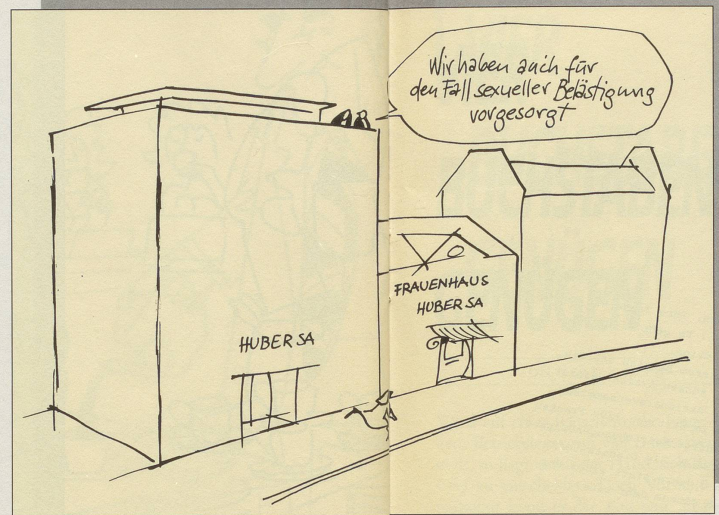 Wir haben auch für
den Fall sexueller Belästigung
vorgesorgt
FRAUENHAUS
HUBER SA
HUBER SA